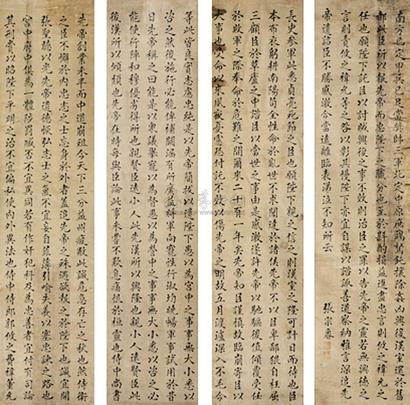 先帝創業未半而中道崩殂今天下三分益州疲敝此誠危急存亡之秋也然侍衛
之臣不懈於內忠志之士忘身於外者蓋追先帝之殊遇欲報之於陛下也誠宜開
張聖聽以光先帝遺德恢弘志士之氣不宜妄自菲薄引喻失義以塞忠諫之路也
宮中府中俱為一體陟罰臧否不宜異同若有作奸犯科及為忠善者宜付有司論
其刑賞以昭陛下平明之治不宜偏私使內外異法也侍中侍郎郭攸之費禕董允
等此皆良實志慮忠純是以先帝簡拔以遺陛下愚以為宮中之事事無大小悉以
咨之然後施行必能裨補闕漏有所廣益將軍向寵性行淑均曉暢軍事試用於昔
日先帝稱之曰能是以眾議舉寵以為督愚以為營中之事事無大小悉以咨之必
能使行陣和穆優劣得所也親賢臣遠小人此先漢所以興隆也親小人遠賢臣此
後漢所以傾頹也先帝在時每與臣論此事未嘗不歎息痛恨於桓靈也侍中尚書
長史參軍此悉貞亮死節之臣也願陛下親之信之則漢室之隆可計日而待也臣
本布衣躬耕南陽苟全性命於亂世不求聞達於諸侯先帝不以臣卑鄙猥自枉屈
三顧臣於草廬之中諮臣以當世之事由是感激遂許先帝以馳驅後值傾覆受任
於敗軍之際奉命於危難之間爾來二十有一年矣先帝知臣謹慎故臨崩寄臣以
大事也受命以來夙夜憂歎恐付託不效以傷先帝之明故五月渡瀘深入不毛今
南方已定甲兵已足當獎帥三軍北定中原庶竭駑鈍攘除姦凶興復漢室還於舊
都此臣所以報先帝而忠陛下之職分也至於斟酌損益進盡忠言則攸之禕允之
任也願陛下託臣以討賊興復之效不效則治臣之罪以告先帝之靈若無興德之
言則責攸之禕允之咎以彰其慢陛下亦宜自謀以諮諏善道察納雅言深追先
帝遺詔臣不勝受恩感激今當遠離臨表涕泣不知所云
張宗蒼